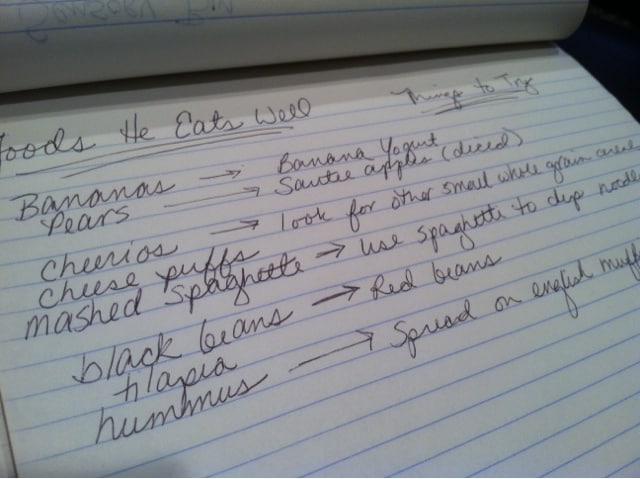 Foods He Eats Well
Things to Try
Bananas → Banana Yogurt
Pears → Sautee apples (diced)
cheerios → look for other small whole grain
cheese puffs
mashed spaghette → use spaghette to
black beans → Red beans
tilapia
hummus → Spread on english muff